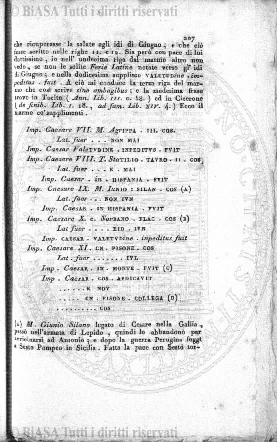 207
che ricuperasse la salute agli idi di Giugno; e che ciò
fusse scritto nelle righe 11. e 12. Sia però con pace di lui
dottissimo, io nell' undecima riga dal marmo altro non
vedo, se non le sillbe Feria Latine notate verso gl' idi
di Giugno; e nella dodicesima supplisco VALETVDINE . im-
peditus . fuit . A ciò mi conduce la terza riga del mar-
mo che così scrive sine ambagibus; e la medesima frase
trovo in Tacito ( Ann. Lib. III. c. 28. ) ed in Cicerone
( de finib. Lib. 1. 18. ad fam. Lib. XIV. 4. ) Ecco il
marmo co' supplimenti .
Imp. Caesare VII. M. AGRIPPA . III. COS.
Lat. fuer ... NON MAI
Imp. Caesar VALETVDINE . INPEDITVS . FVIT
Imp. Caesare VIII. T. STATILIO . TAVRO . II . COS
Lat. fuer ... K . MAI
Imp. Caesar . in . HISPANIA . FVIT
Imp. Caesare IX. M. IVNIO : SILAN . COS (A)
Lat. fuer .. NON IVN
Imp. CAESAR . IN HISPANIA . FVIT
Imp. Caesare X. C. NORBANO . FLAC . COS (B)
Lat fuer .... EID . IVN
Imp. CAESAR . VALETVDINE . impeditus fuit
Imp. Caesare XI. CN . PISONE . COS
Lat. fuer ....... IVL
Imp . CAESAR . IN . MONTE . FVIT (C)
Imp . CAESAR . COS . ABDICAVIT
...... K NOV
CN . PISONE . COLLEGA (D)
......... COS
(A) M. Giunio Silano legato di Cesare nella Gallia ,
passò nell'armata di Lepido , quindi lo abbandonò per
avvicinarsi ad Antonio; e dopo la guerra Perugina fuggì
a Sesto Pompeo in Sicilia . Fatta la pace con Sesto tor-
© Diomira Stampe Antiche
Tutti i diritti riservati